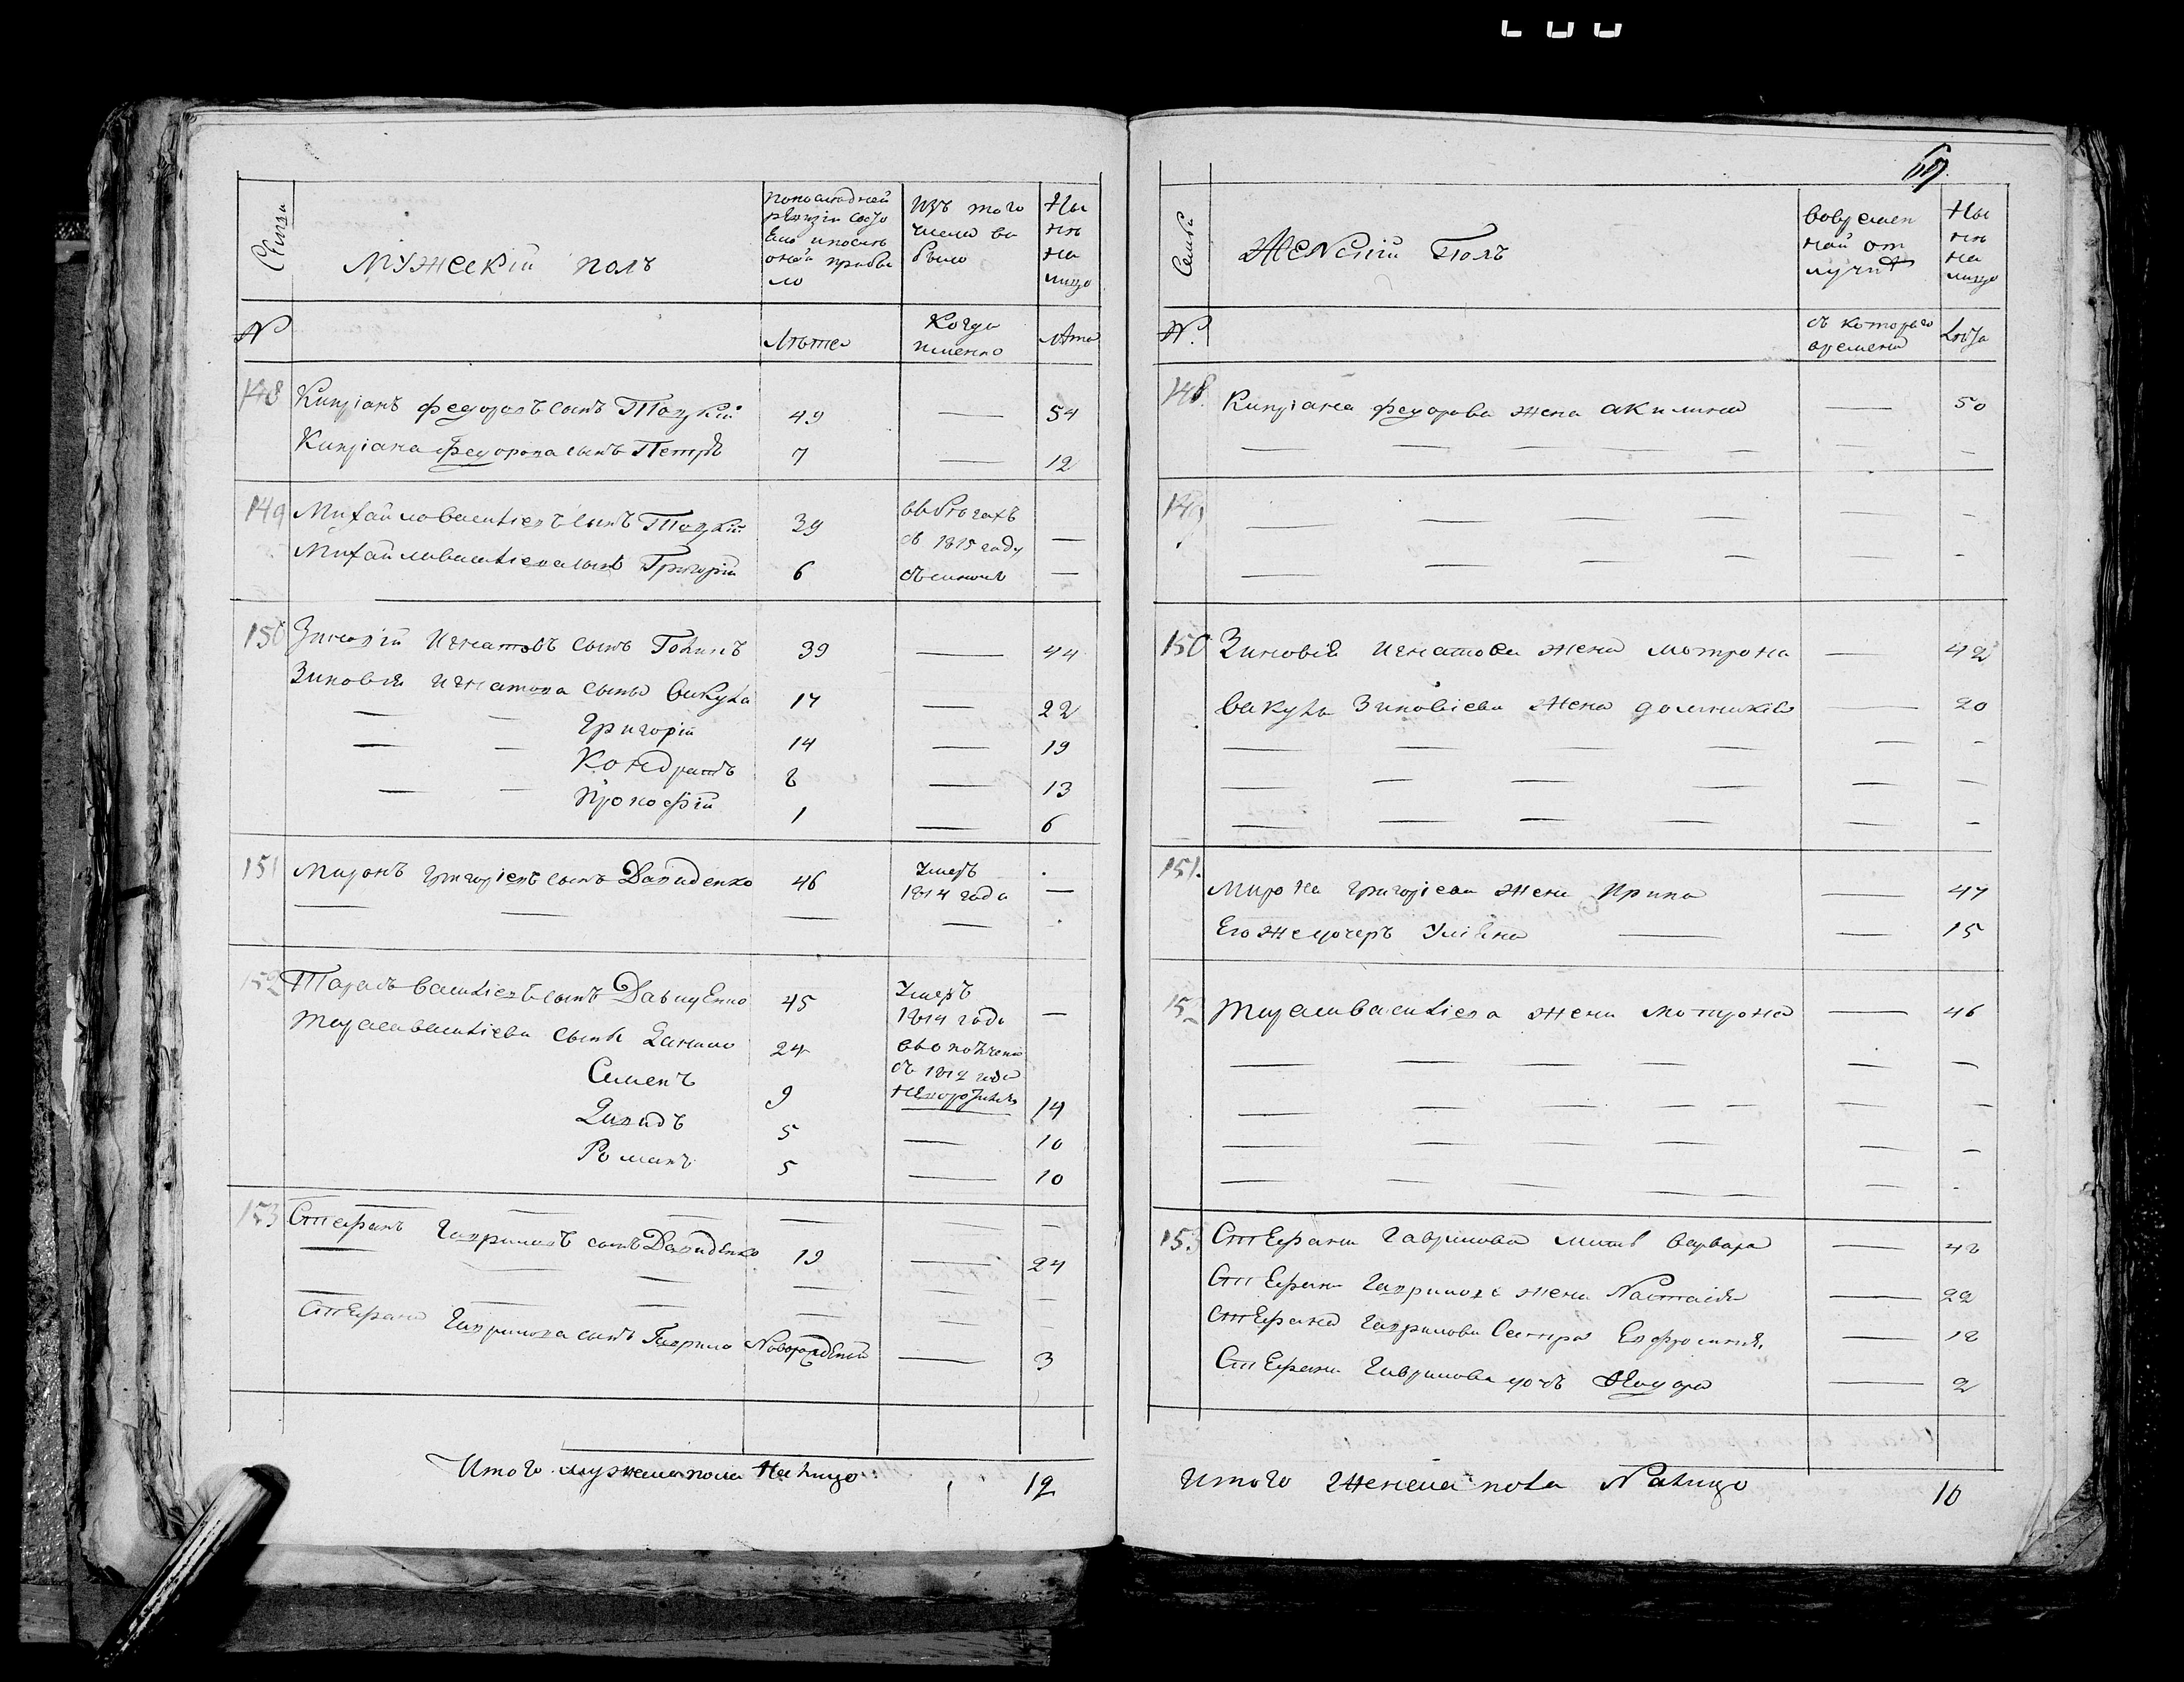 Семья
Мужескій полъ
По последней ревизіи состояло и после оной прибыло
Изъ того числа выбыло
Ныне на лицо
№
Лъта
Когда именно
Лъта
148 Кипріанъ Федоровъ сынъ 49 — 54
Кипріана Федорова сынъ Петръ 7 — 12
149 Михайло Василіевъ сынъ 39 въ бегахъ съ 1815 году —
Михайла Василіева сынъ Григорій 6 съ —
150 Зиновій Игнатовъ сынъ 39 — 44
Зиновія Игнатова сыны Вакула 17 — 22
— — Григорій 14 — 19
— — Кондратъ 8 — 13
— — Прокофій 1 — 6
151 Миронъ Григоріевъ сынъ Давиденко 46 Умеръ 1814 года —
— — — —
152 Тарасъ Василіевъ сынъ Давиденко 45 Умеръ 1814 года —
Тараса Василіева сынъ Данило 24 съ 1812 года
Семенъ 9 14
Давидъ 5 — 10
Романъ 5 — 10
153 — — — — — —
Стефанъ Гавриловъ сынъ Давиденко 19 — 24
— — — — — —
— — — — — —
Стефана Гаврилова сынъ Гаврило Новорожденный — 3
Итого мужеска пола на лицо 12
69
Семья
Женскій Полъ
Во временной отлучкъ
Ныне на лицо
№.
съ которого времени
Лъта
148. Кипріана Федорова жена Акилина — 50
— — — — — —
149 — — — — — —
— — — — — —
150 Зиновія Игнатова жена Мотрона — 42
Вакула Зиновіева жена — 20
— — — — — —
— — — — — —
— — — — — —
151. Мирона Григоріева жена Ирина — 47
Его же дочеръ Уліяна — — 15
152 Тараса Василіева жена Мотрона — 46
— — — — — —
— — — — — —
— — — — — —
— — — — — —
153 Стефана Гаврилова мать Варвара — 48
Стефана Гаврилова жена Настасія — 22
Стефана Гаврилова сестра Евфросинія — 18
Стефана Гаврилова дочъ — 2
Итого Женска пола Налицо 10